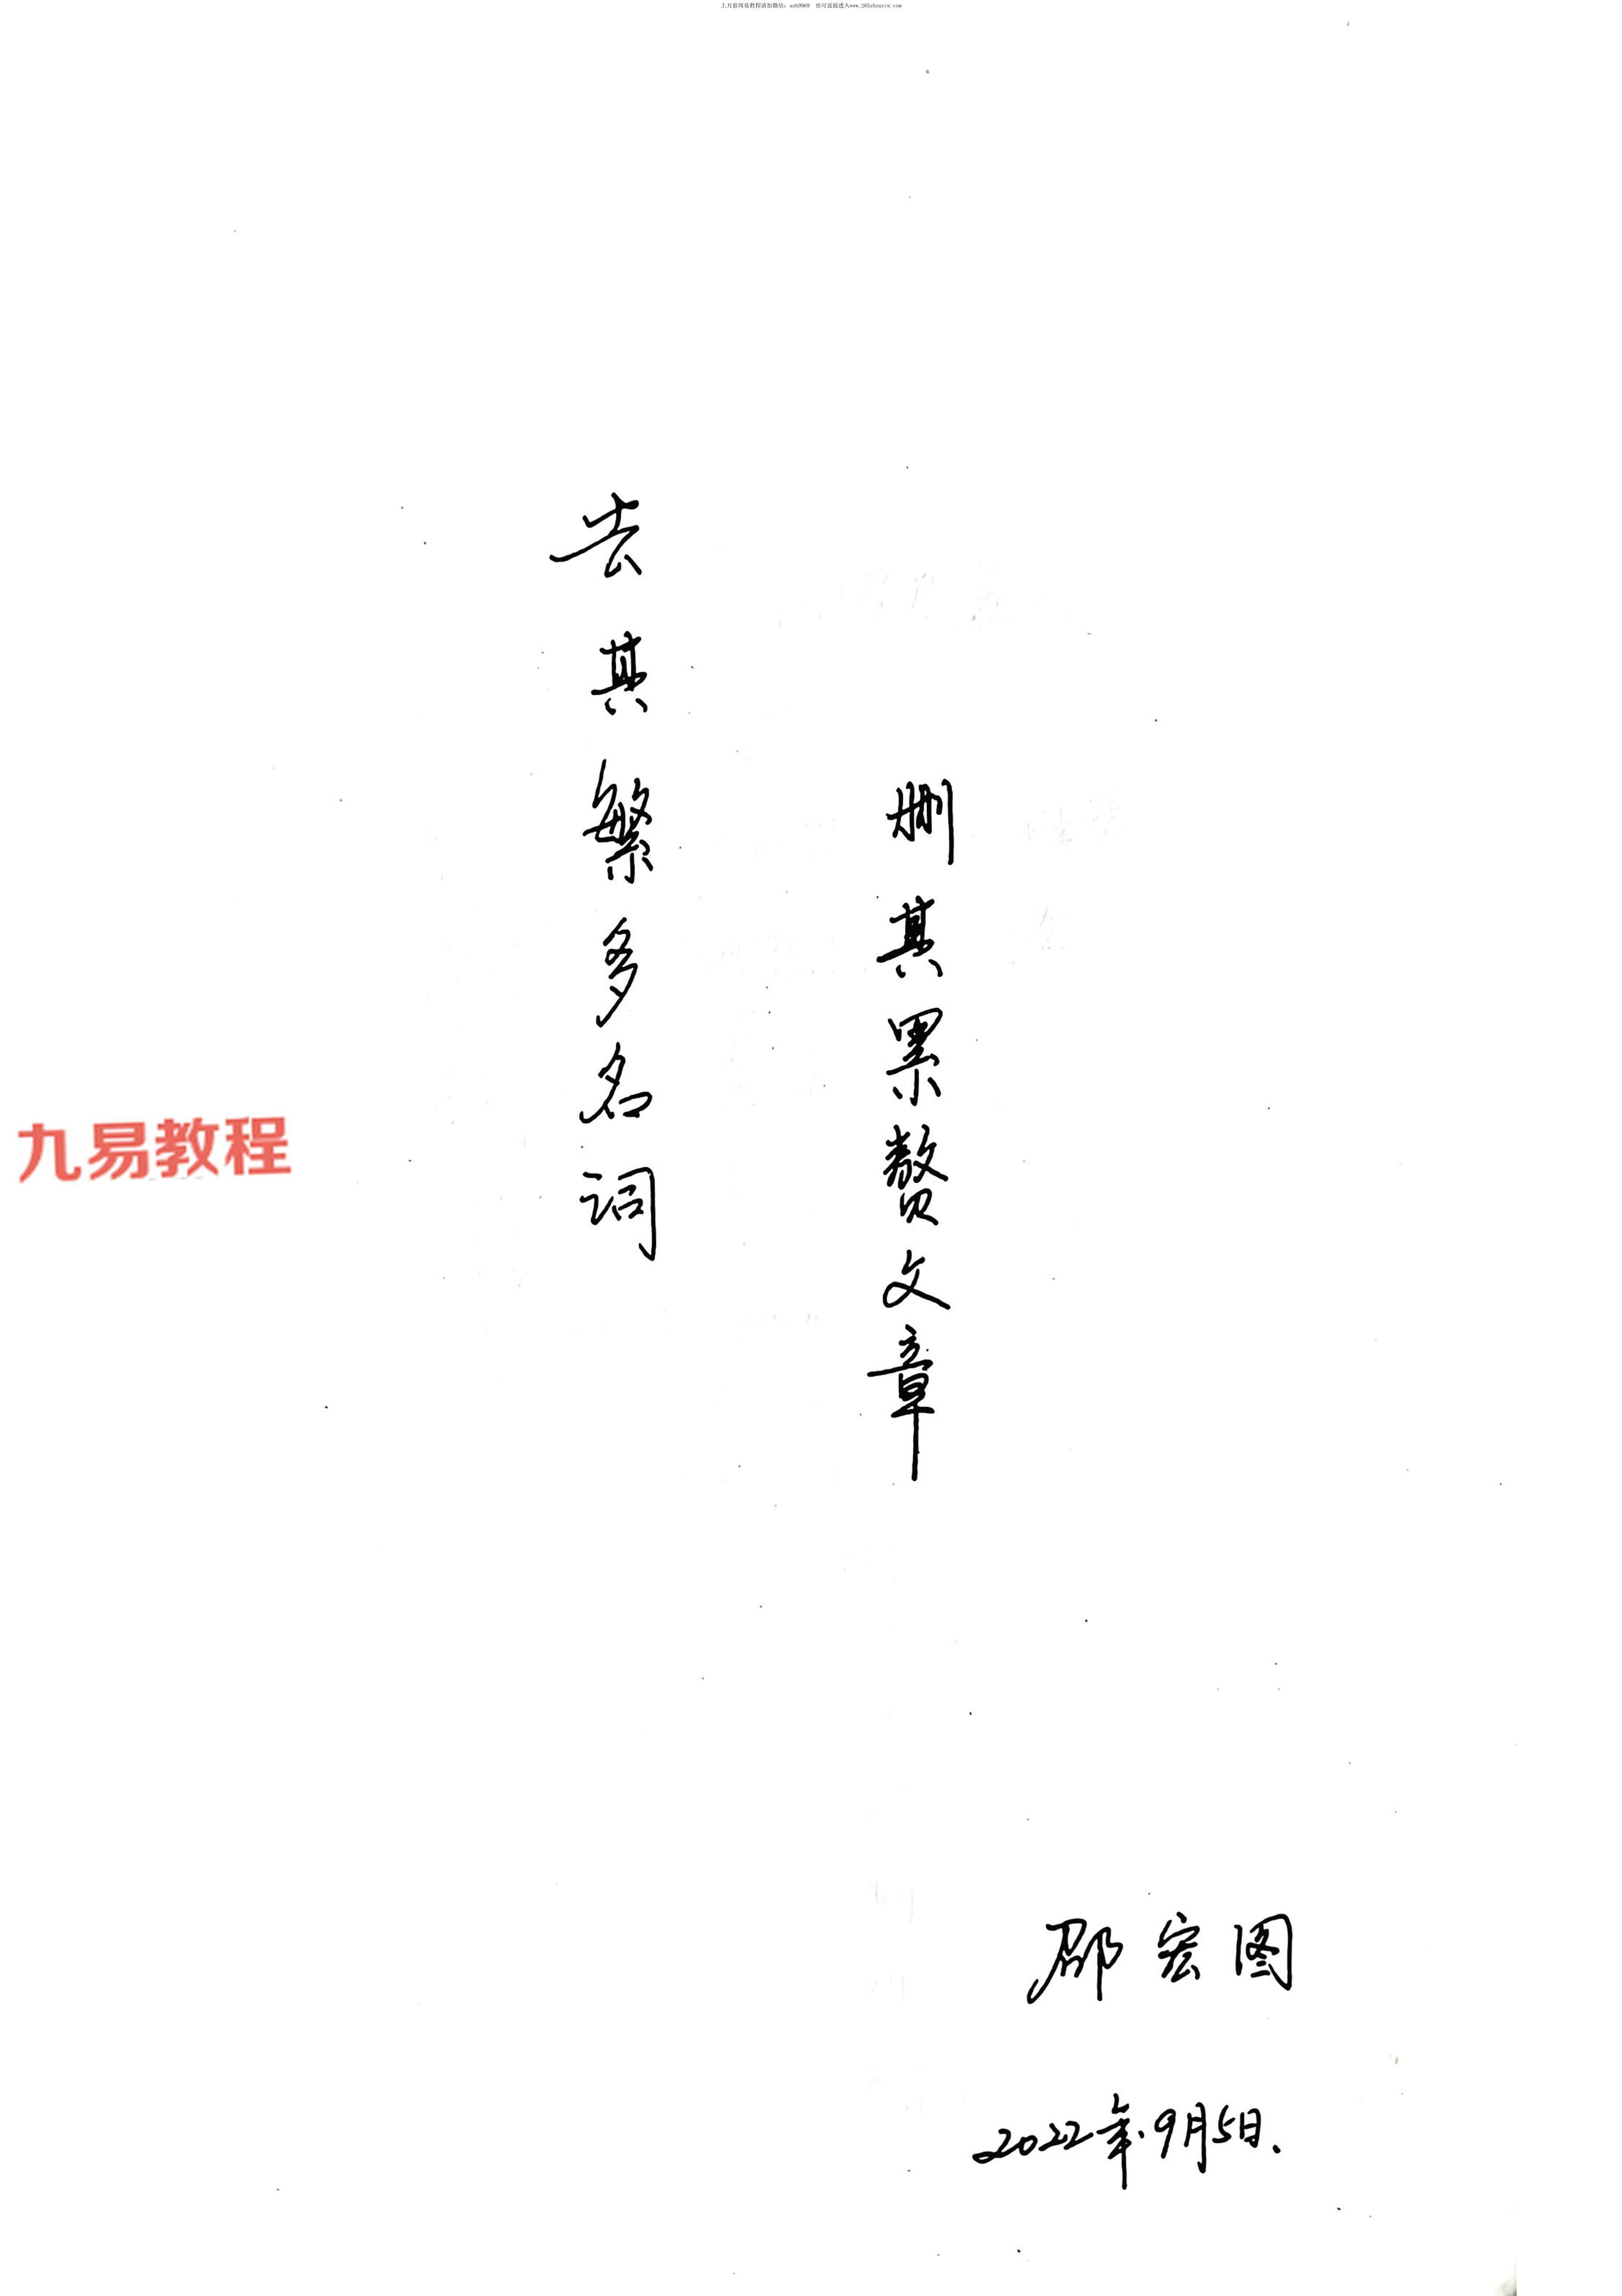 上万套周易教程请加微信：azh9969 也可直接进入www.265zhouyiw.com
删其累赘文章
去其繁多名词
九易教程
邵宏图
2022年.9月5日.